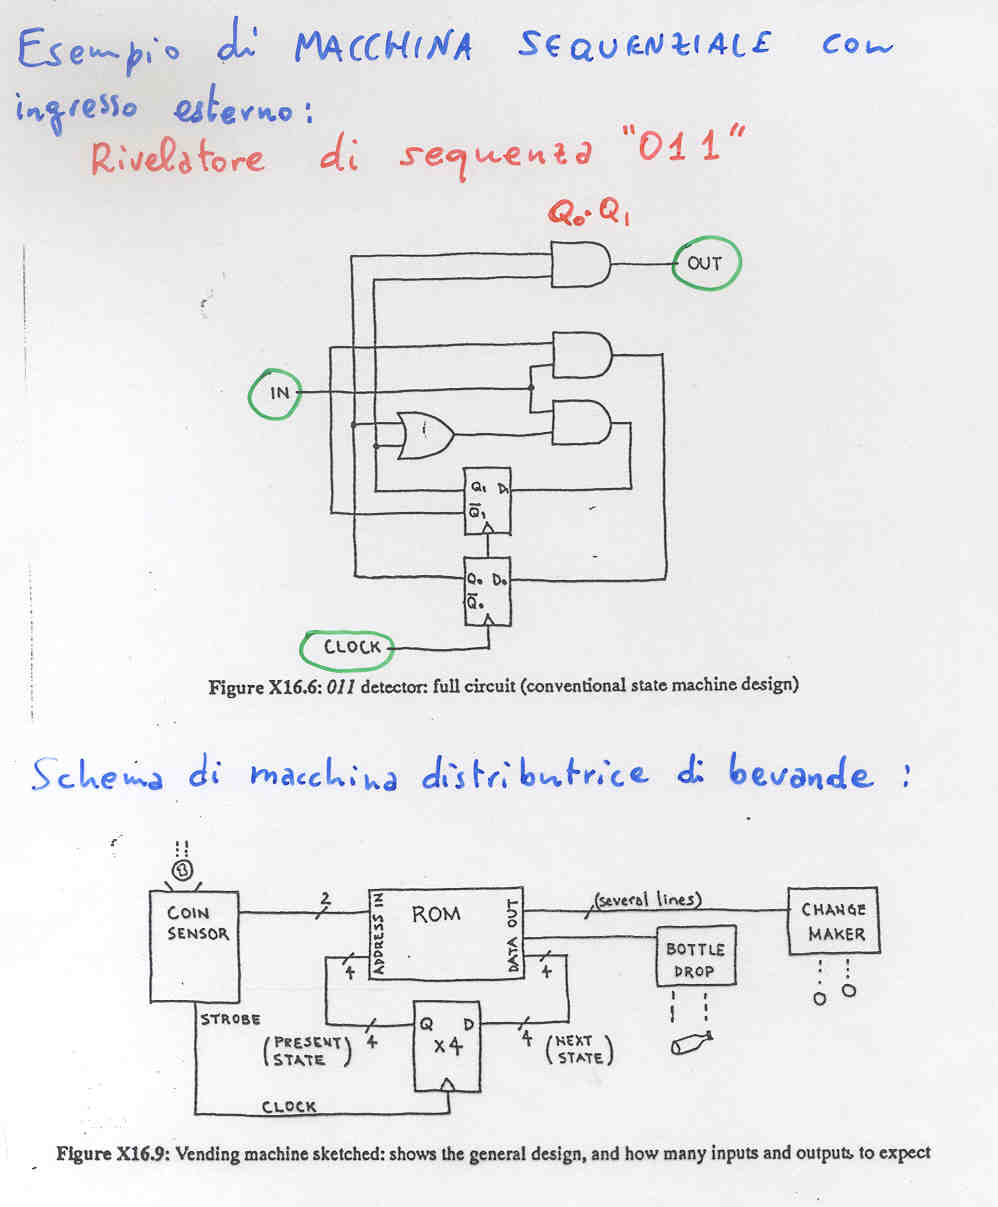 Esempio di MACCHINA SEQUENZIALE con
ingresso esterno:
Rivelatore di sequenza "011"
Q₀·Q₁
OUT
IN
Q₁ D₁
Q̅₁
Q₀ D₀
Q̅₀
CLOCK
Figure X16.6: 011 detector: full circuit (conventional state machine design)
Schema di macchina distributrice di bevande :
COIN
SENSOR
2
ADDRESS IN
ROM
DATA OUT
(several lines)
CHANGE
MAKER
BOTTLE
DROP
4
4
STROBE
(PRESENT
STATE)
4
Q D
X4
4
(NEXT
STATE)
CLOCK
Figure X16.9: Vending machine sketched: shows the general design, and how many inputs and outputs to expect